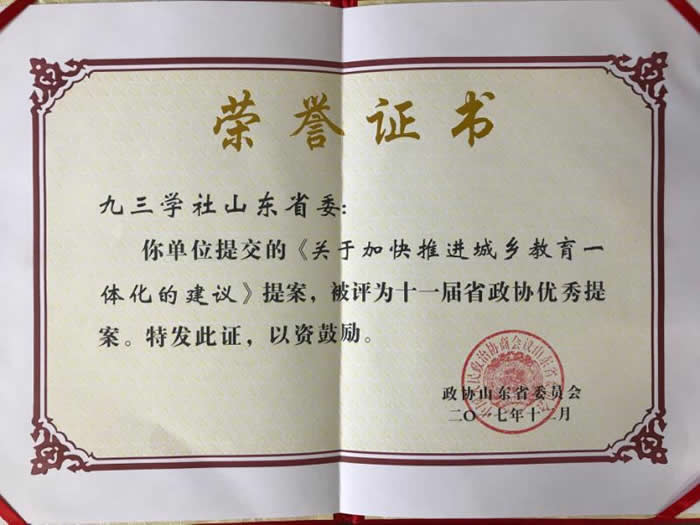 荣誉证书
九三学社山东省委：
你单位提交的《关于加快推进城乡教育一
体化的建议》提案，被评为十一届省政协优秀提
案。特发此证，以资鼓励。
政协山东省委员会
二〇一七年十二月